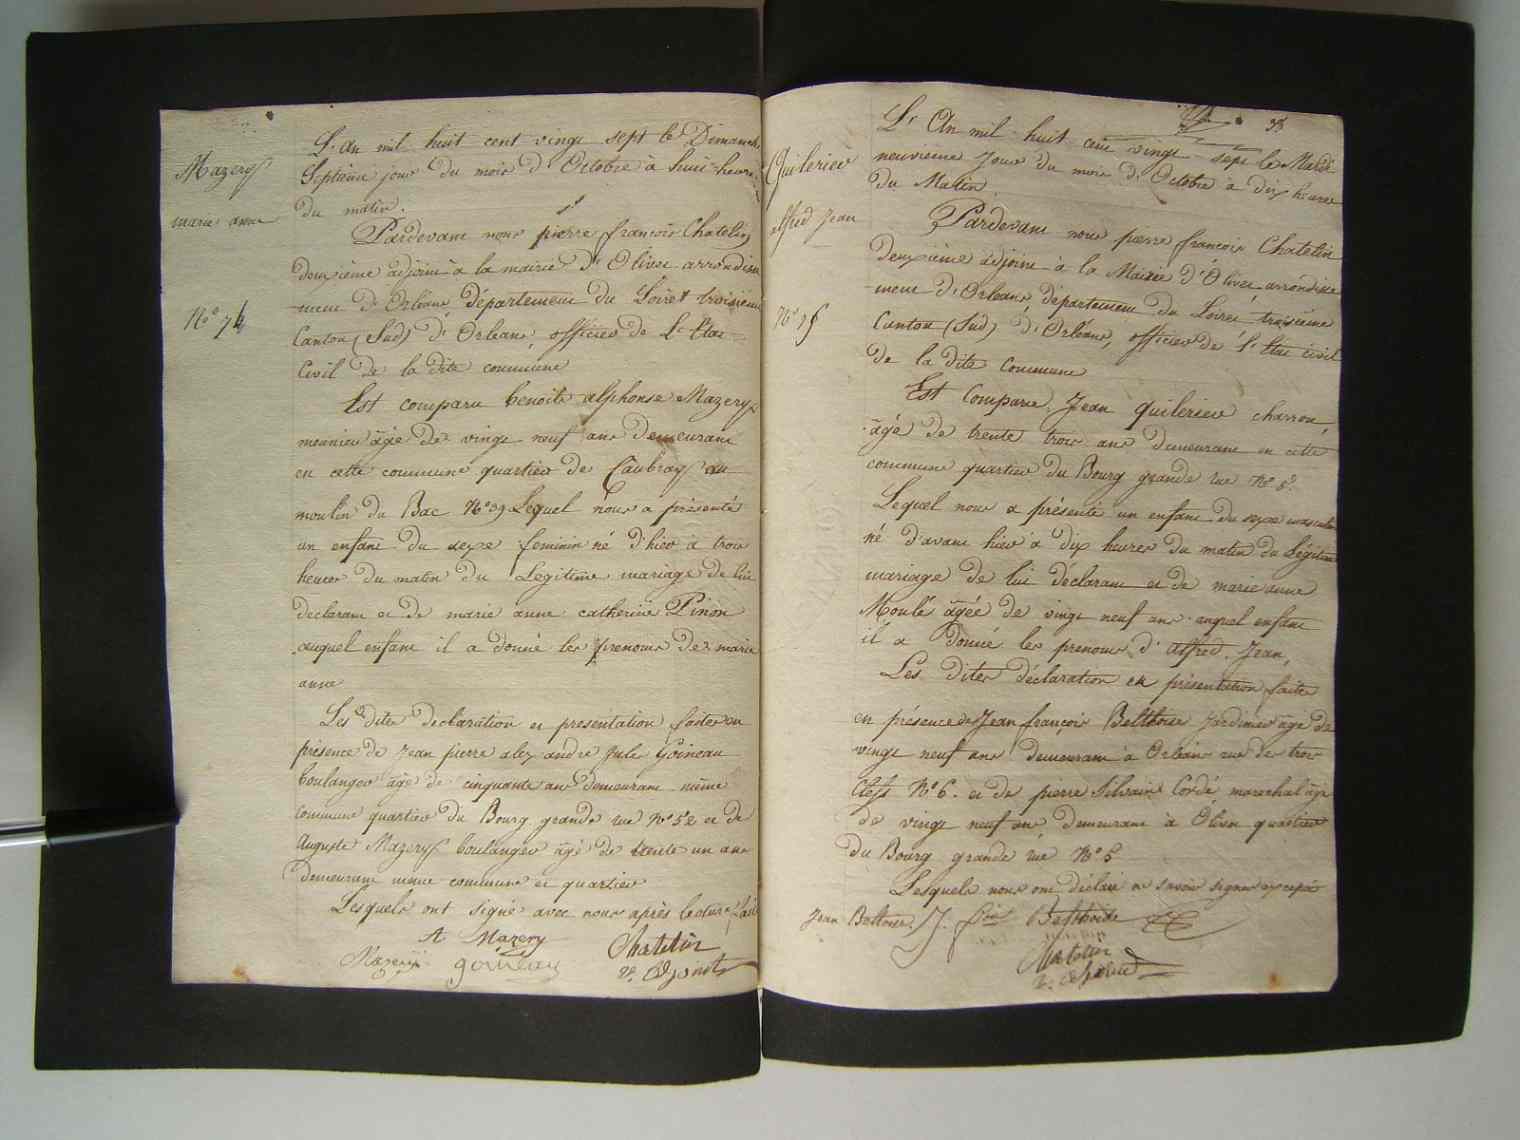 Mazery
marie anne
N° 74
L'An mil huit cent vingt sept le Dimanche
Septieme jour du mois d'Octobre à huit heures
du matin.
Pardevant nous pierre françois Chatelin
deuxième adjoint à la mairie d'Olivet arrondisse
ment d'Orléans département du Loiret troisième
Canton (Sud) d'Orléans, officier de l'Etat
Civil de la dite commune
Est comparu benoite alphonse Mazery
meunier âgé de vingt neuf ans demeurant
en cette commune quartier de Caubray au
moulin du Bac N° 39 Lequel nous a présenté
un enfant du sexe feminin né d'hier à trois
heures du matin du Legitime mariage de lui
declarant et de marie anne catherine Pinon
auquel enfant il a donné les prenoms de marie
anne
Les dites declaration et presentation faites en
présence de Jean pierre alexandre Jule Goineau
boulanger âgé de cinquante ans demeurant même
commune quartier du Bourg grande rue N° 52 et de
Auguste Mazery boulanger âgé de trente un ans
demeurant meme commune et quartier
Lesquels ont signé avec nous après lecture faite
A Mazery
Mazery goineau
Chatelin
2e Adjoint
38
Quilerier
alfred Jean
N° 75
L'An mil huit cent vingt sept le Mardi
neuvieme Jour du mois d'Octobre à dix heures
du Matin
Pardevant nous pierre françois Chatelin
deuxième adjoint à la Mairie d'Olivet arrondisse
ment d'Orléans département du Loiret troisième
Canton (Sud) d'Orléans, officier de l'Etat civil
de la dite commune
Est Comparu Jean quilerier charron,
âgé de trente trois ans demeurant en cette
commune quartier du Bourg grande rue N° 5.
Lequel nous a présenté un enfant du sexe masculin
né d'avant hier à dix heures du matin du Légitime
mariage de lui déclarant et de marie anne
Moulé âgée de vingt neuf ans auquel enfant
il a donné les prenoms d'alfred Jean,
Les dites déclaration et présentation faites
en présence de Jean françois Belthoise Jardinier âgé de
vingt neuf ans demeurant à Orléans rue des trois
Clefs N° 6. et de pierre Silvain Cordé marechal âgé
de vingt neuf ans demeurant à Olivet quartier
du Bourg grande rue N° 5
Lesquels nous ont déclaré ne savoir signer excepté
Jean Beltoise. J. fois Belthoise
Chatelin
2e Adjoint